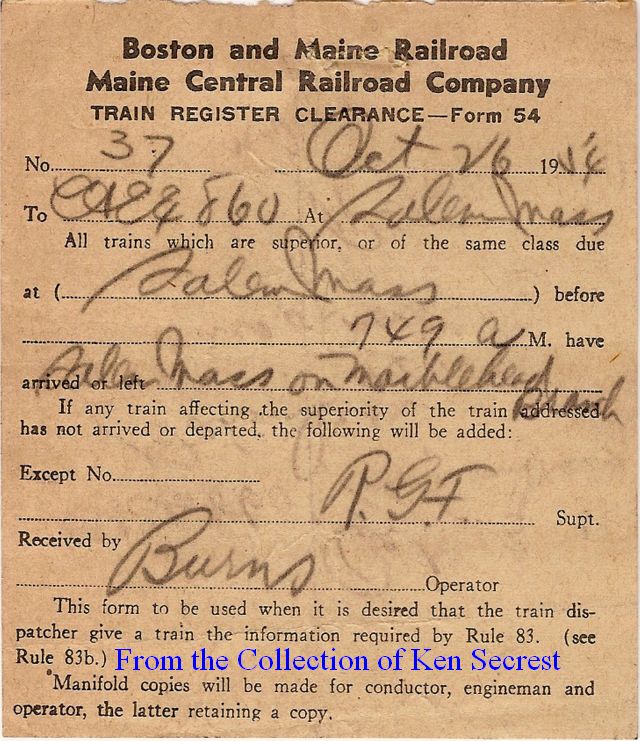 Boston and Maine Railroad
Maine Central Railroad Company
TRAIN REGISTER CLEARANCE—Form 54
No. 37 Oct 26 19
To 860 At Salem Mass
All trains which are superior, or of the same class due
at ( Salem Mass ) before
749 a M. have
arrived or left Salem Mass on Marblehead Branch
If any train affecting the superiority of the train addressed
has not arrived or departed, the following will be added:
Except No.
R.G.F. Supt.
Received by
Burns Operator
This form to be used when it is desired that the train dis-
patcher give a train the information required by Rule 83. (see
Rule 83b.) From the Collection of Ken Secrest
Manifold copies will be made for conductor, engineman and
operator, the latter retaining a copy.